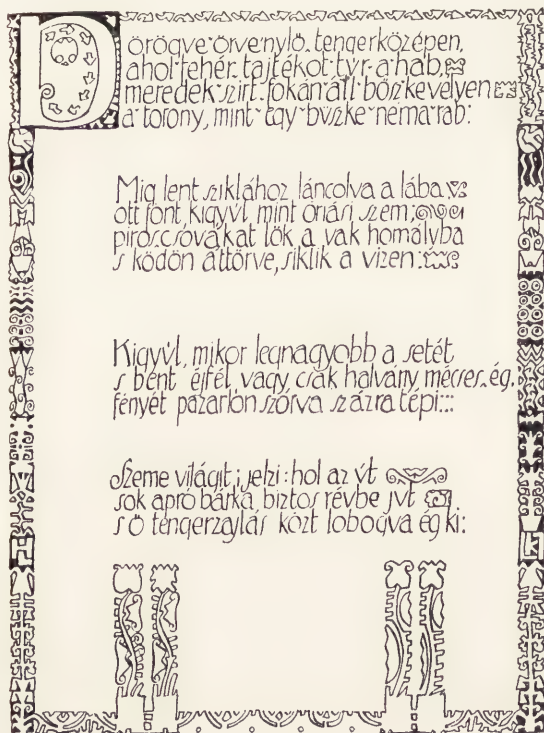 Dörögve örvenylö tengerközépen,
ahol fehér tajtékot tyr a hab
meredek szirt fokán áll böszke velyen
a torony, mint egy büszke néma rab:
Mig lent sziklához láncolva a lába
ott font kigyvl mint óriási szem;
piros csóvákat lök a vak homályba
s ködön áttörve, siklik a vizen:
Kigyvl, mikor legnagyobb a setét
s bent éjfél, vagy csak halvány mécses ég.
fényét pazarlón szórva százra tépi:::
Szeme világit; jelzi: hol az vt
sok apró bárka biztos révbe jvt
s ö tengerzvgás közt lobogva ég ki: